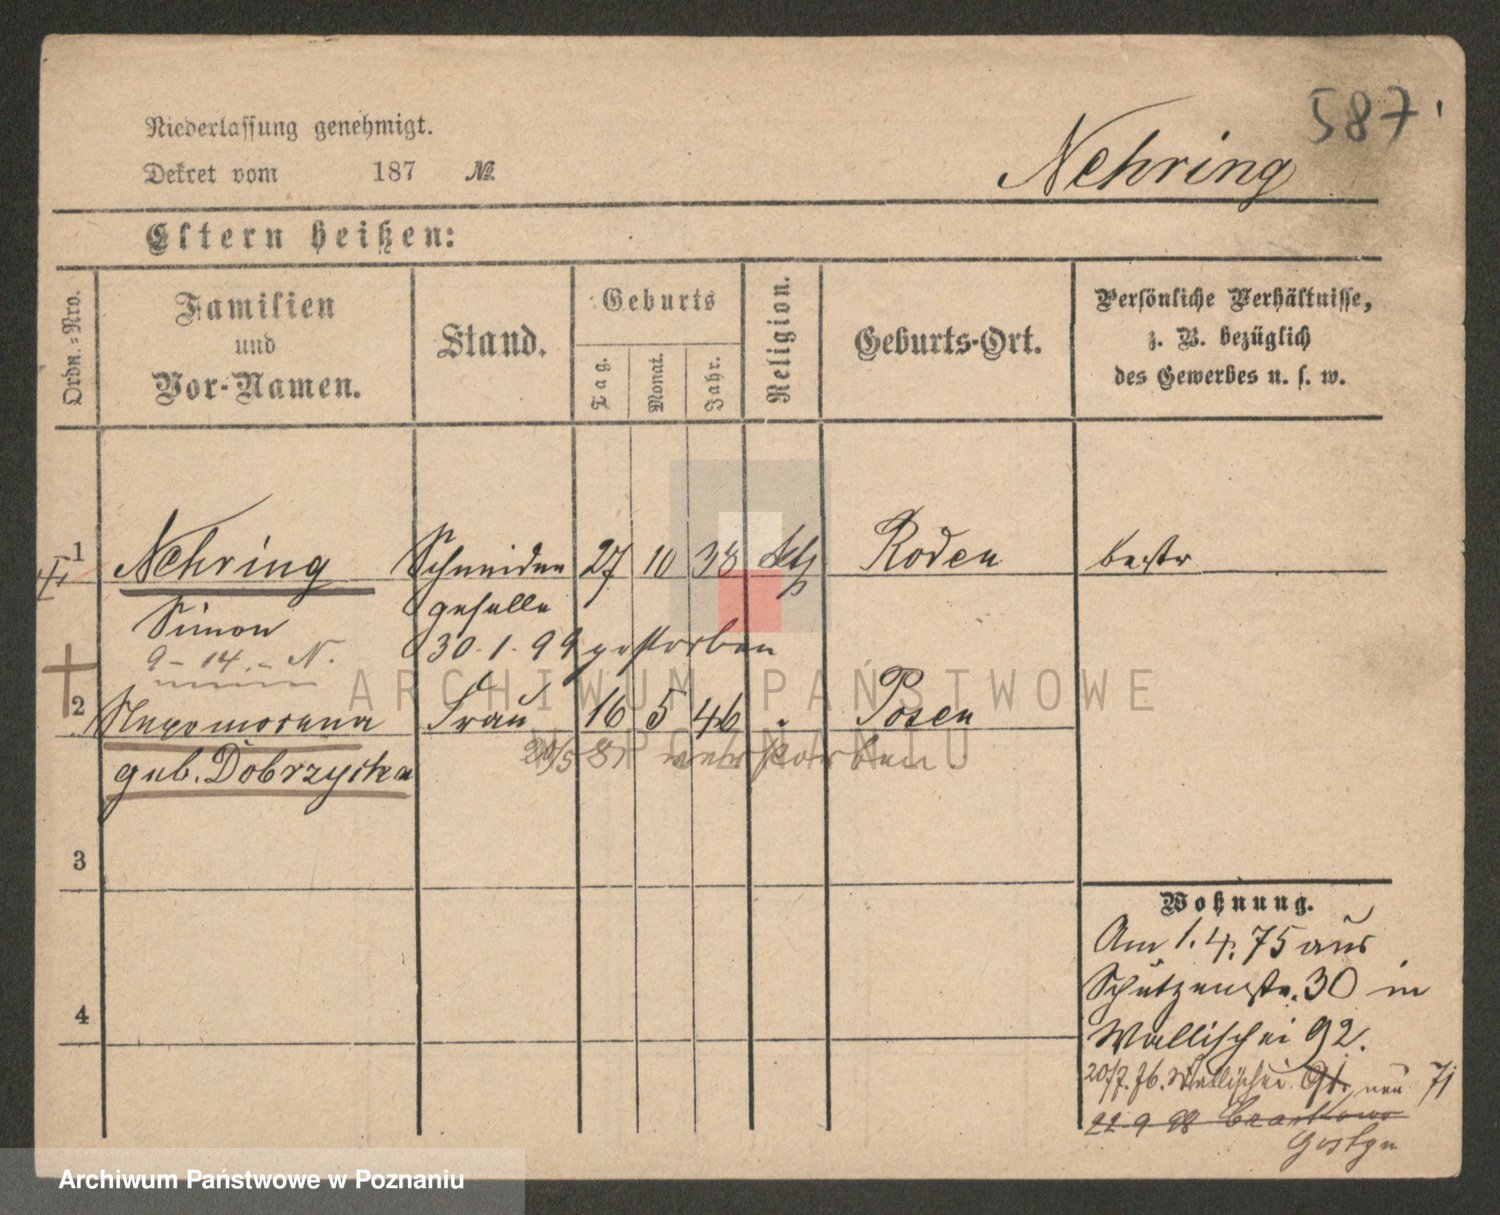 587
Niederlassung genehmigt.
Dekret vom 187 №
Nehring
Eltern heißen:
Ordn.-Nro.
Familien
und
Vor-Namen.
Stand.
Geburts
Tag.
Monat.
Jahr.
Religion.
Geburts-Ort.
Persönliche Verhältnisse,
z. B. bezüglich
des Gewerbes u. s. w.
1 Nehring Schneider 27 10 38 kth Roden bestr
Simon geselle
9 - 14. - N. 30. 1. 99 gestorben
2 Nepomocena Frau 16 5 46 " Posen
geb. Dobrzycka 20/5 81 verstorben.
3
4
Wohnung.
Am 1. 4. 75 aus
Schützenstr. 30 in
Wallischei 92.
20/7. 76. Wallischei 91. neu 71
22 9 98
Gostyn
ARCHIWUM PAŃSTWOWE
W POZNANIU
Archiwum Państwowe w Poznaniu